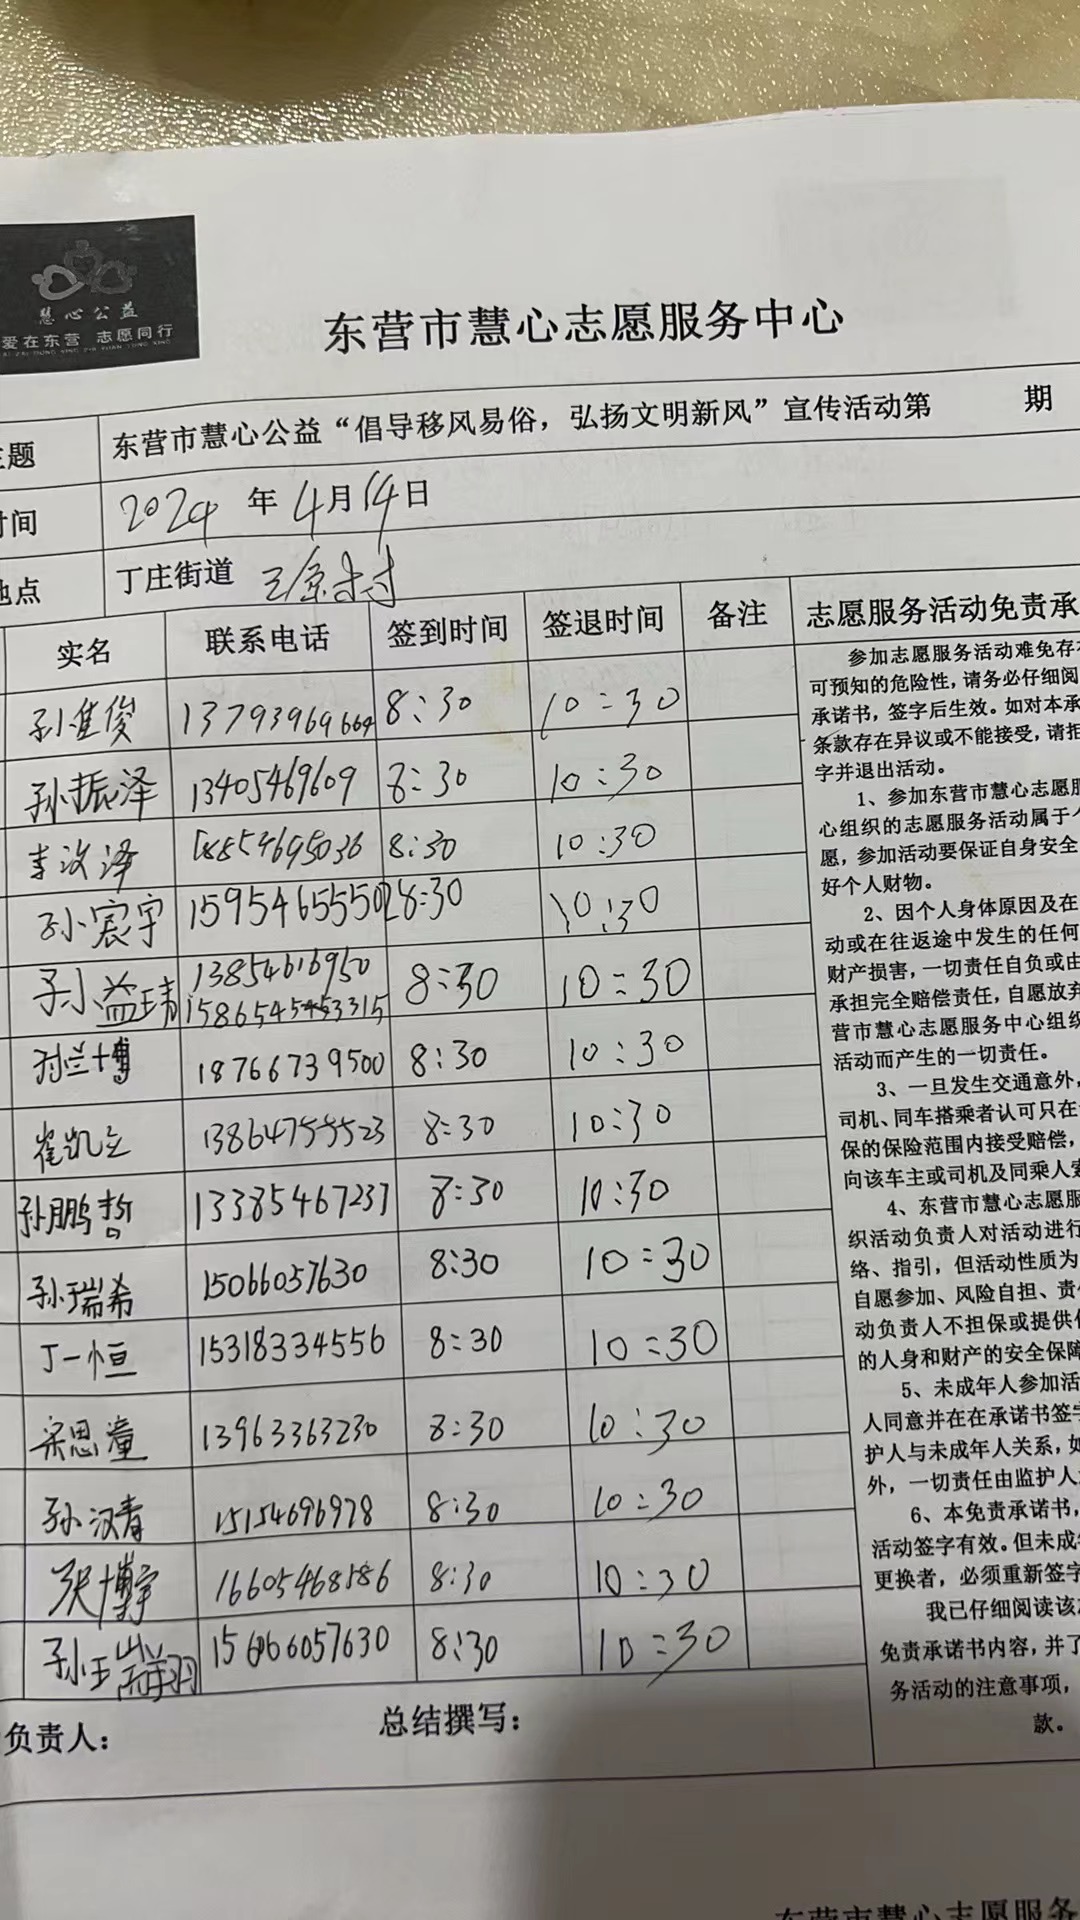 慧心公益
爱在东营 志愿同行
AI ZAI DONG YING ZHI YUAN TONG XING
东营市慧心志愿服务中心
主题 东营市慧心公益“倡导移风易俗，弘扬文明新风”宣传活动第 期
时间 2024 年 4月14日
地点 丁庄街道 三原村
实名 联系电话 签到时间 签退时间 备注 志愿服务活动免责承
孙隹俊 13793969664 8:30 10:30
孙振泽 13405469609 8:30 10:30
李汶泽 18854695036 8:30 10:30
孙宸宇 15954655502 8:30 10:30
孙益玮 13854616950 8:30 10:30
孙兰博 18766739500 8:30 10:30
崔凯立 13864755523 8:30 10:30
孙鹏哲 13385467237 8:30 10:30
孙瑞希 15066057630 8:30 10:30
丁一恒 15318334556 8:30 10:30
宋思潼 13963363230 8:30 10:30
孙汉青 15154696978 8:30 10:30
张博宇 16605468586 8:30 10:30
孙玉 15066057630 8:30 10:30
参加志愿服务活动难免存在
可预知的危险性，请务必仔细阅
承诺书，签字后生效。如对本承
条款存在异议或不能接受，请拒
字并退出活动。
1、参加东营市慧心志愿服
心组织的志愿服务活动属于个
愿，参加活动要保证自身安全
好个人财物。
2、因个人身体原因及在
动或在往返途中发生的任何
财产损害，一切责任自负或由
承担完全赔偿责任，自愿放弃
营市慧心志愿服务中心组织
活动而产生的一切责任。
3、一旦发生交通意外，
司机、同车搭乘者认可只在
保的保险范围内接受赔偿，
向该车主或司机及同乘人索
4、东营市慧心志愿服
织活动负责人对活动进行
络、指引，但活动性质为
自愿参加、风险自担、责任
动负责人不担保或提供
的人身和财产的安全保障
5、未成年人参加活
人同意并在在承诺书签字
护人与未成年人关系，如
外，一切责任由监护人
6、本免责承诺书，
活动签字有效。但未成年
更换者，必须重新签字
我已仔细阅读该
免责承诺书内容，并了
务活动的注意事项，
款。
负责人： 总结撰写：
东营市慧心志愿服务